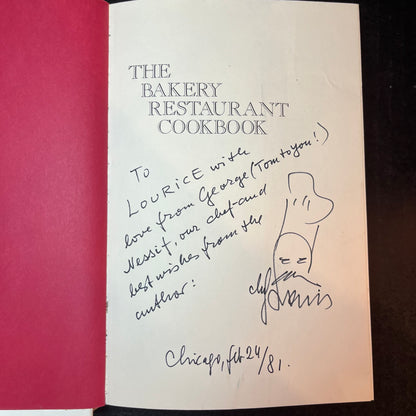 THE
BAKERY
RESTAURANT
COOKBOOK
To
LOURICE with
love from George (Tom to you!)
Nessif, our chef and
best wishes from the
author:
Chef Louis
Chicago, feb 24/81.